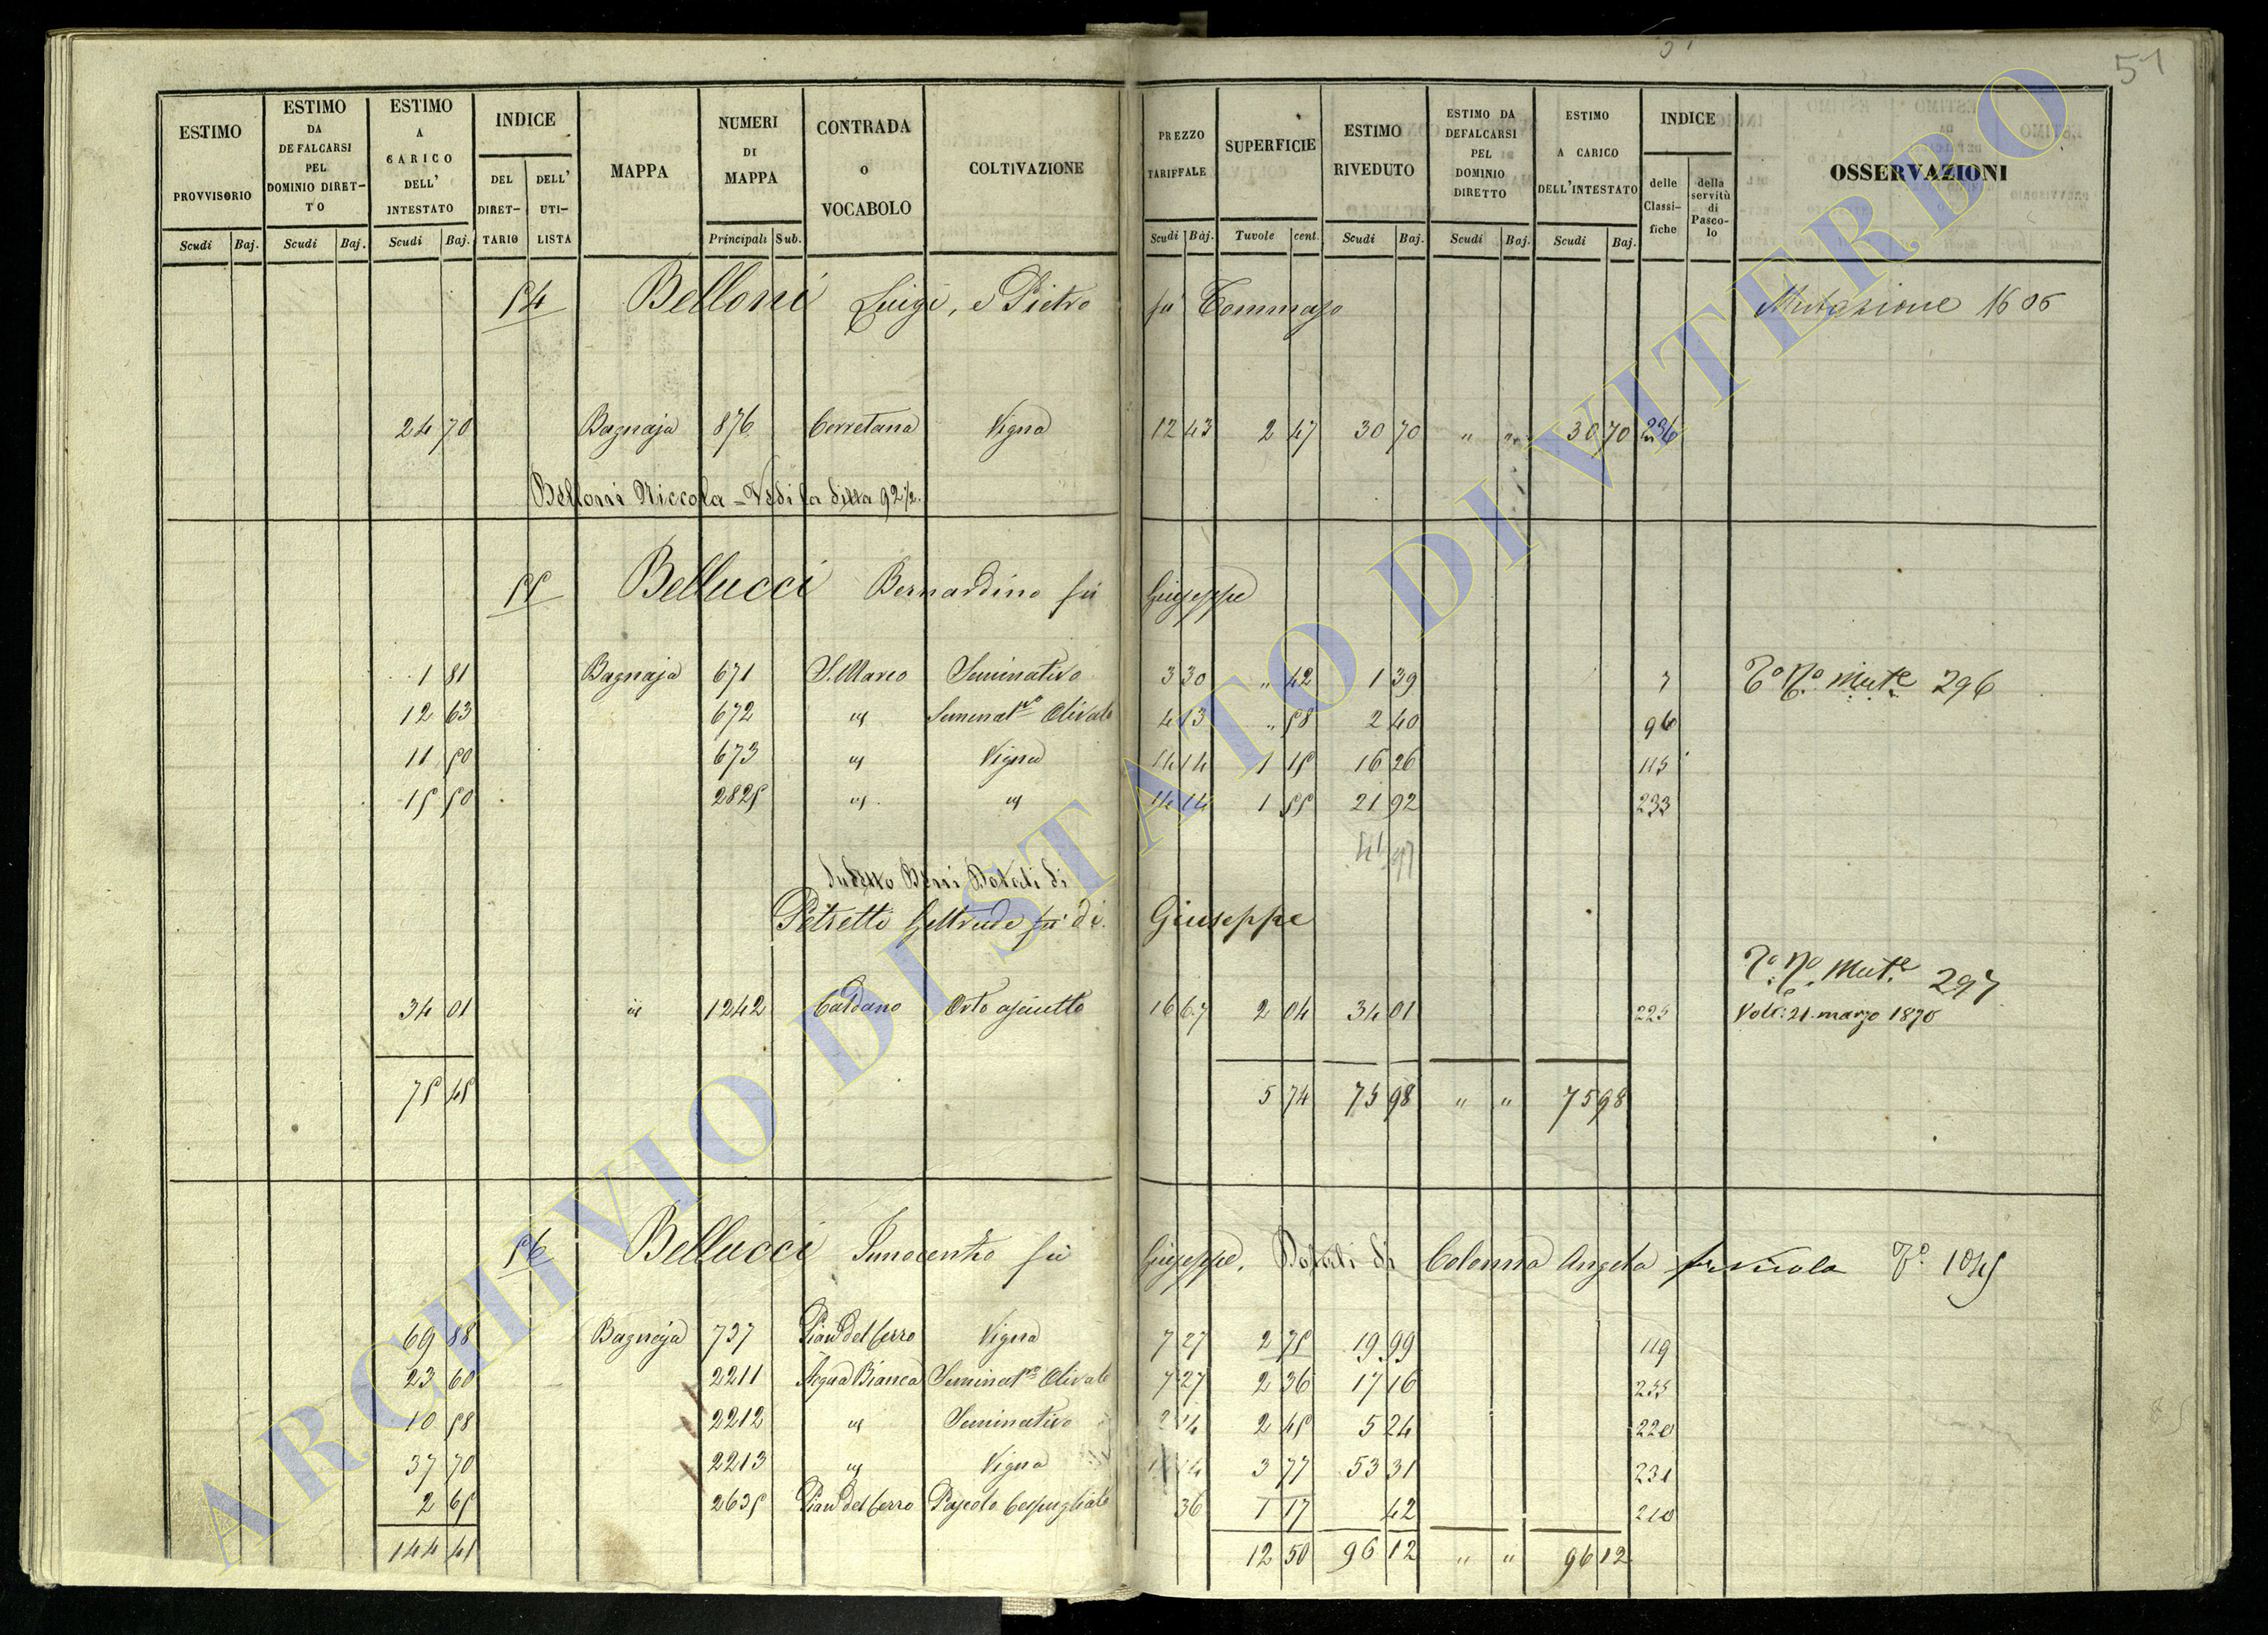 51
ESTIMO PROVVISORIO Scudi Baj. | ESTIMO DA DEFALCARSI PEL DOMINIO DIRETTO Scudi Baj. | ESTIMO A CARICO DELL' INTESTATO Scudi Baj. | INDICE DEL DIRETTARIO DELL' UTILISTA | MAPPA | NUMERI DI MAPPA Principali Sub. | CONTRADA o VOCABOLO | COLTIVAZIONE | PREZZO TARIFFALE Scudi Baj. | SUPERFICIE Tavole cent. | ESTIMO RIVEDUTO Scudi Baj. | ESTIMO DA DEFALCARSI PEL DOMINIO DIRETTO Scudi Baj. | ESTIMO A CARICO DELL'INTESTATO Scudi Baj. | INDICE delle Classifiche della servitù di Pascolo | OSSERVAZIONI
54 Belloni Luigi, e Pietro fu Tommaso Mutazione 1606
24 70 Bagnaja 876 Cerretana Vigna 12 43 2 47 30 70 " " 30 70 236
Belloni Niccola = Vedi la ditta 92 1/2.
55 Bellucci Bernardino fu Giuseppe
1 81 Bagnaja 671 S. Marco Seminativo 3 30 " 42 1 39 7 Mute 296
12 63 672 " Seminatvo Olivato 4 13 " 58 2 40 96
11 50 673 " Vigna 14 14 1 15 16 26 115
15 50 2825 " " 14 14 1 55 21 92 233
41 97
Sudetto Beni Dotali di
Petretti Geltrude fu di Giuseppe
Mute 297
34 01 " 1242 Caldano Orto asciutto 16 67 2 04 34 01 225 Volt: 21. marzo 1870
75 45 5 74 75 98 " " 75 98
56 Bellucci Innocenzo fu Giuseppe. Dotali di Colonna Angela fu Nicola To. 1045
69 88 Bagnaja 737 Pian del Cerro Vigna 7 27 2 75 19 99 119
23 60 2211 Acqua Bianca Seminatvo Olivato 7 27 2 36 17 16 235
10 58 2212 " Seminativo 2 14 2 45 5 24 220
37 70 2213 " Vigna 14 14 3 77 53 31 231
2 65 2635 Pian del Cerro Pascolo Cespugliato 36 1 17 42 210
144 41 12 50 96 12 " " 96 12
ARCHIVIO DI STATO DI VITERBO